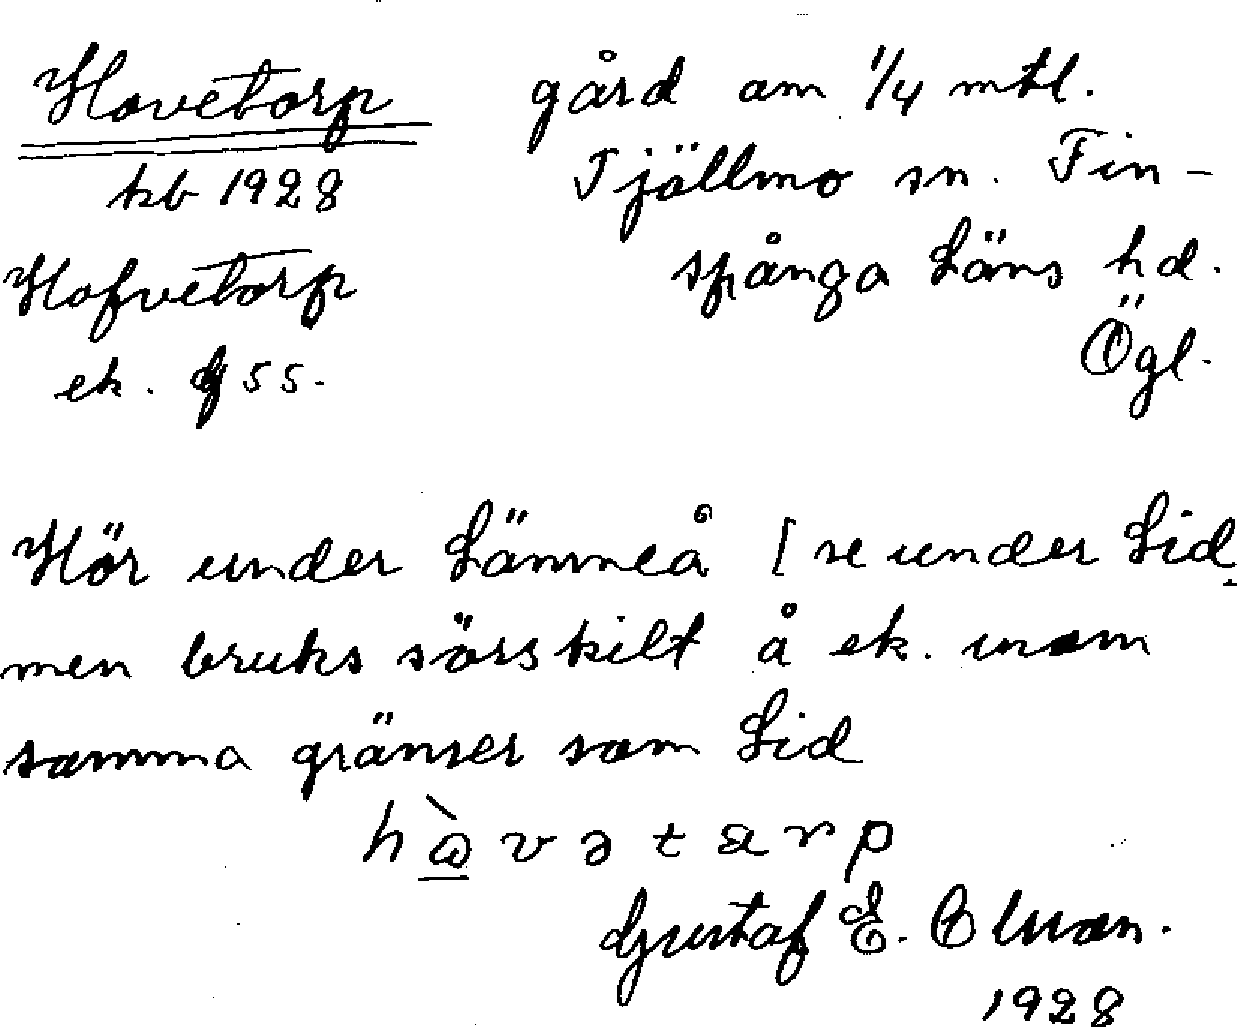 Hovetorp
kb 1928
Hofvetorp
ek. 55.
gård om 1/4 mtl.
Tjällmo sn. Fin-
spånga Läns hd.
Ögl.
Hör under Lämmeå [se under Lid
men bruks särskilt å ek. inom
samma gränser som Lid
Gustaf E.
1928